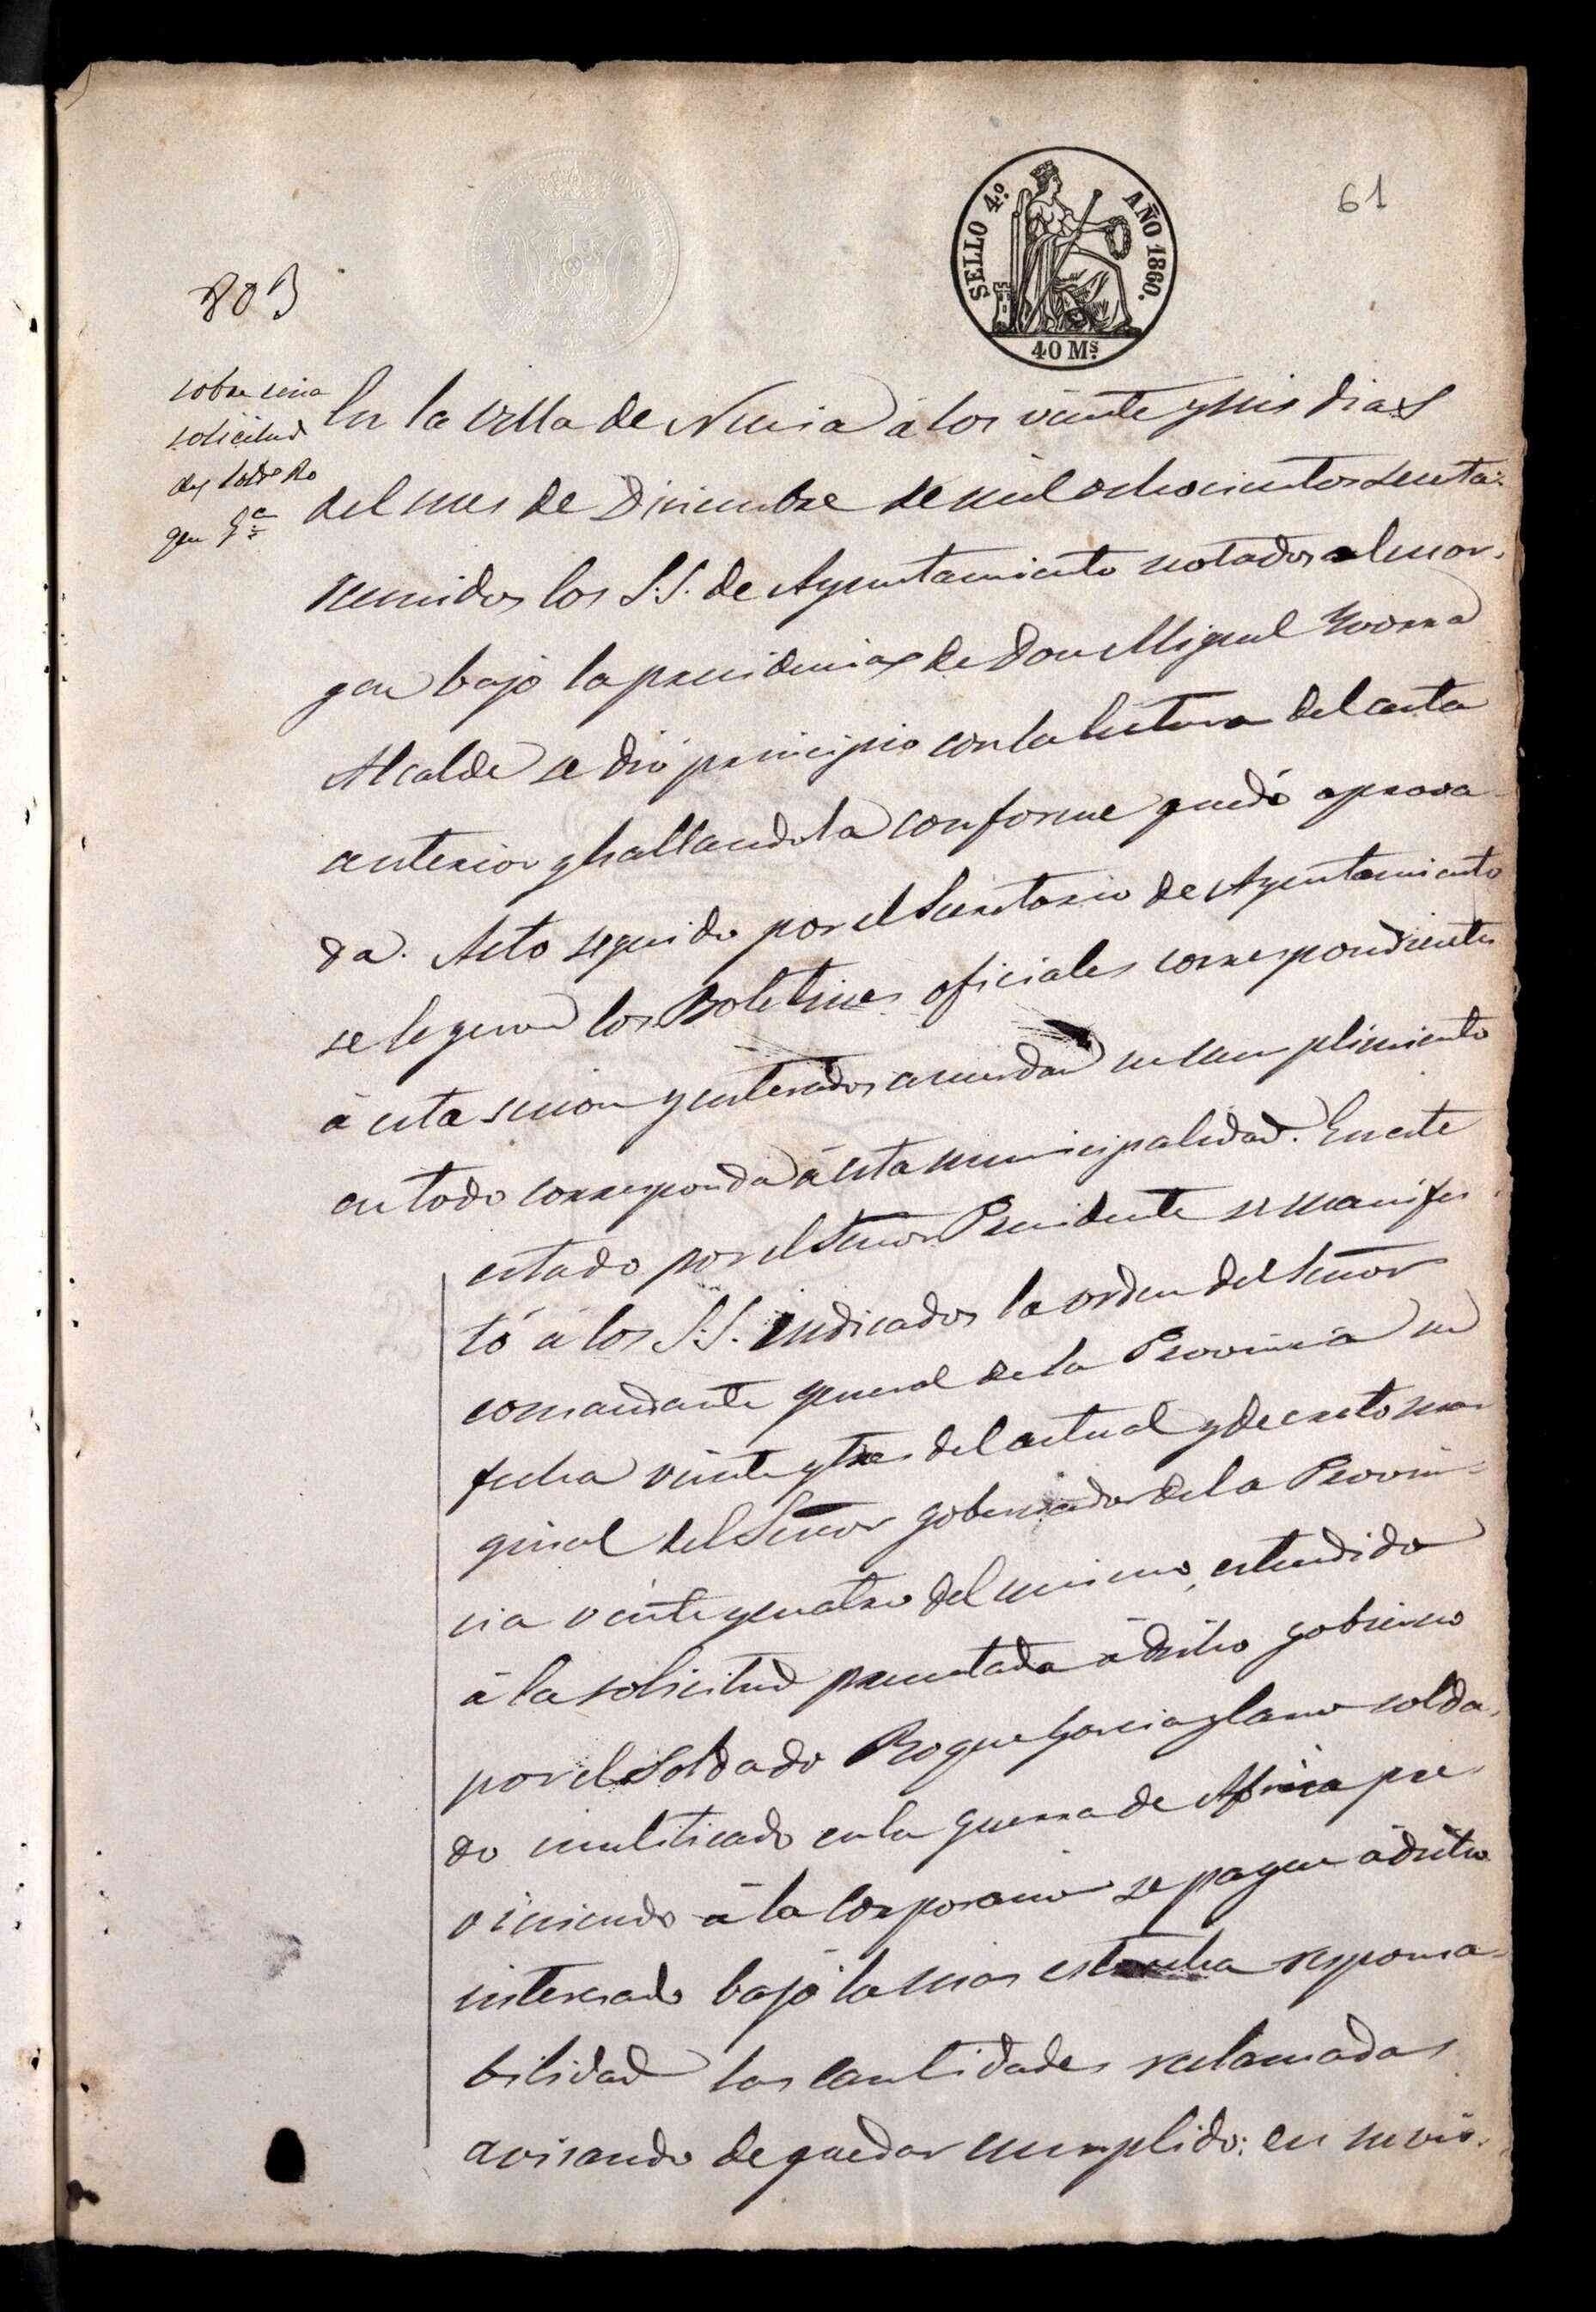 61
SELLO 4.º AÑO 1860.
40 Ms.
803
sobre una
solicitud
del soldº Ro
que Gª
En la villa de Nucia á los veinte y seis dias
del mes de Diciembre de mil ochocientos sesenta:
reunidos los S.S. de Ayuntamiento notados al mar-
gen bajo la presidencia de Don Miguel Yvorra
Alcalde se dió principio con la lectura del acta
anterior y hallandola conforme quedó aprova-
da. Acto seguido por el Secretario de Ayuntamiento
se leyeron los Boletines oficiales correspondientes
á esta sesion y enterados acuerdan su cumplimiento
en todo corresponda á esta municipalidad. En este
estado por el Señor Presidente se manifes-
tó á los S.S. indicados la orden del Señor
comandante general de la Provincia su
fecha veinte y tres del actual y decreto mar-
ginal del Señor gobernador de la Provin-
cia veinte y cuatro del mismo, estendido
á la solicitud presentada á dicho gobierno
por el Soldado Roque Garcia y Lano solda-
do inutilizado en la guerra de Africa pre-
viniendo á la Corporacion se pague á dicho
interesado bajo la mas estrecha responsa-
bilidad las cantidades reclamadas
avisando de quedar cumplido: en su vis-